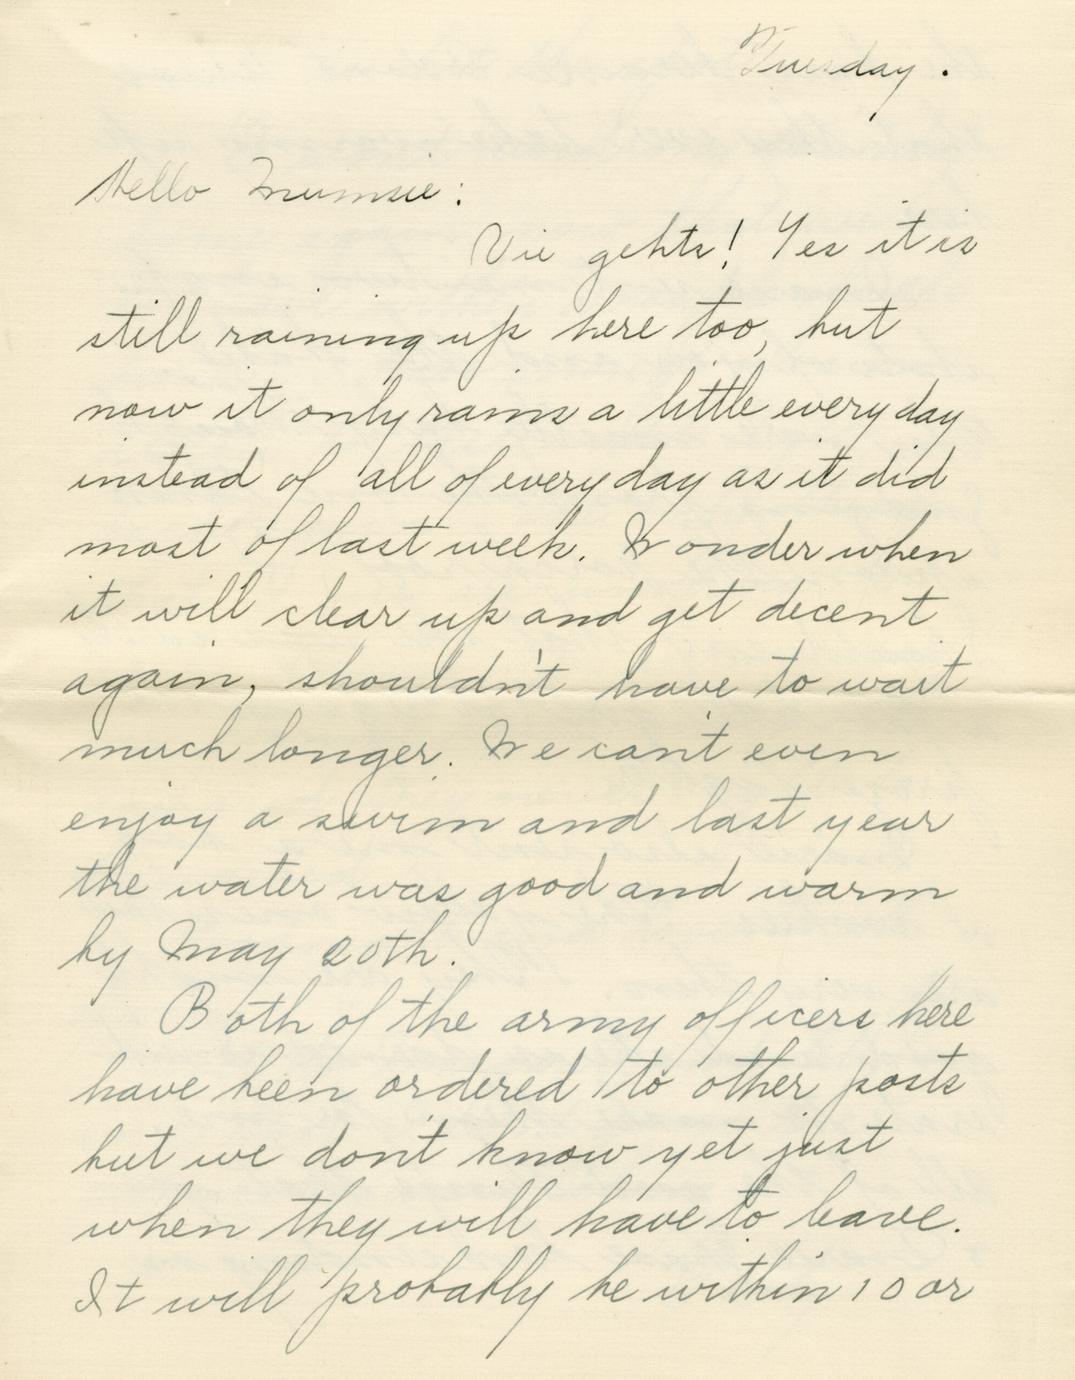 Tuesday.
Hello Mumsie:
Vie gehts! Yes it is
still raining up here too, but
now it only rains a little every day
instead of all of every day as it did
most of last week. Wonder when
it will clear up and get decent
again, shouldn't have to wait
much longer. We can't even
enjoy a swim and last year
the water was good and warm
by May 20th.
Both of the army officers here
have been ordered to other posts
but we don't know yet just
when they will have to leave.
It will probably be within 10 or